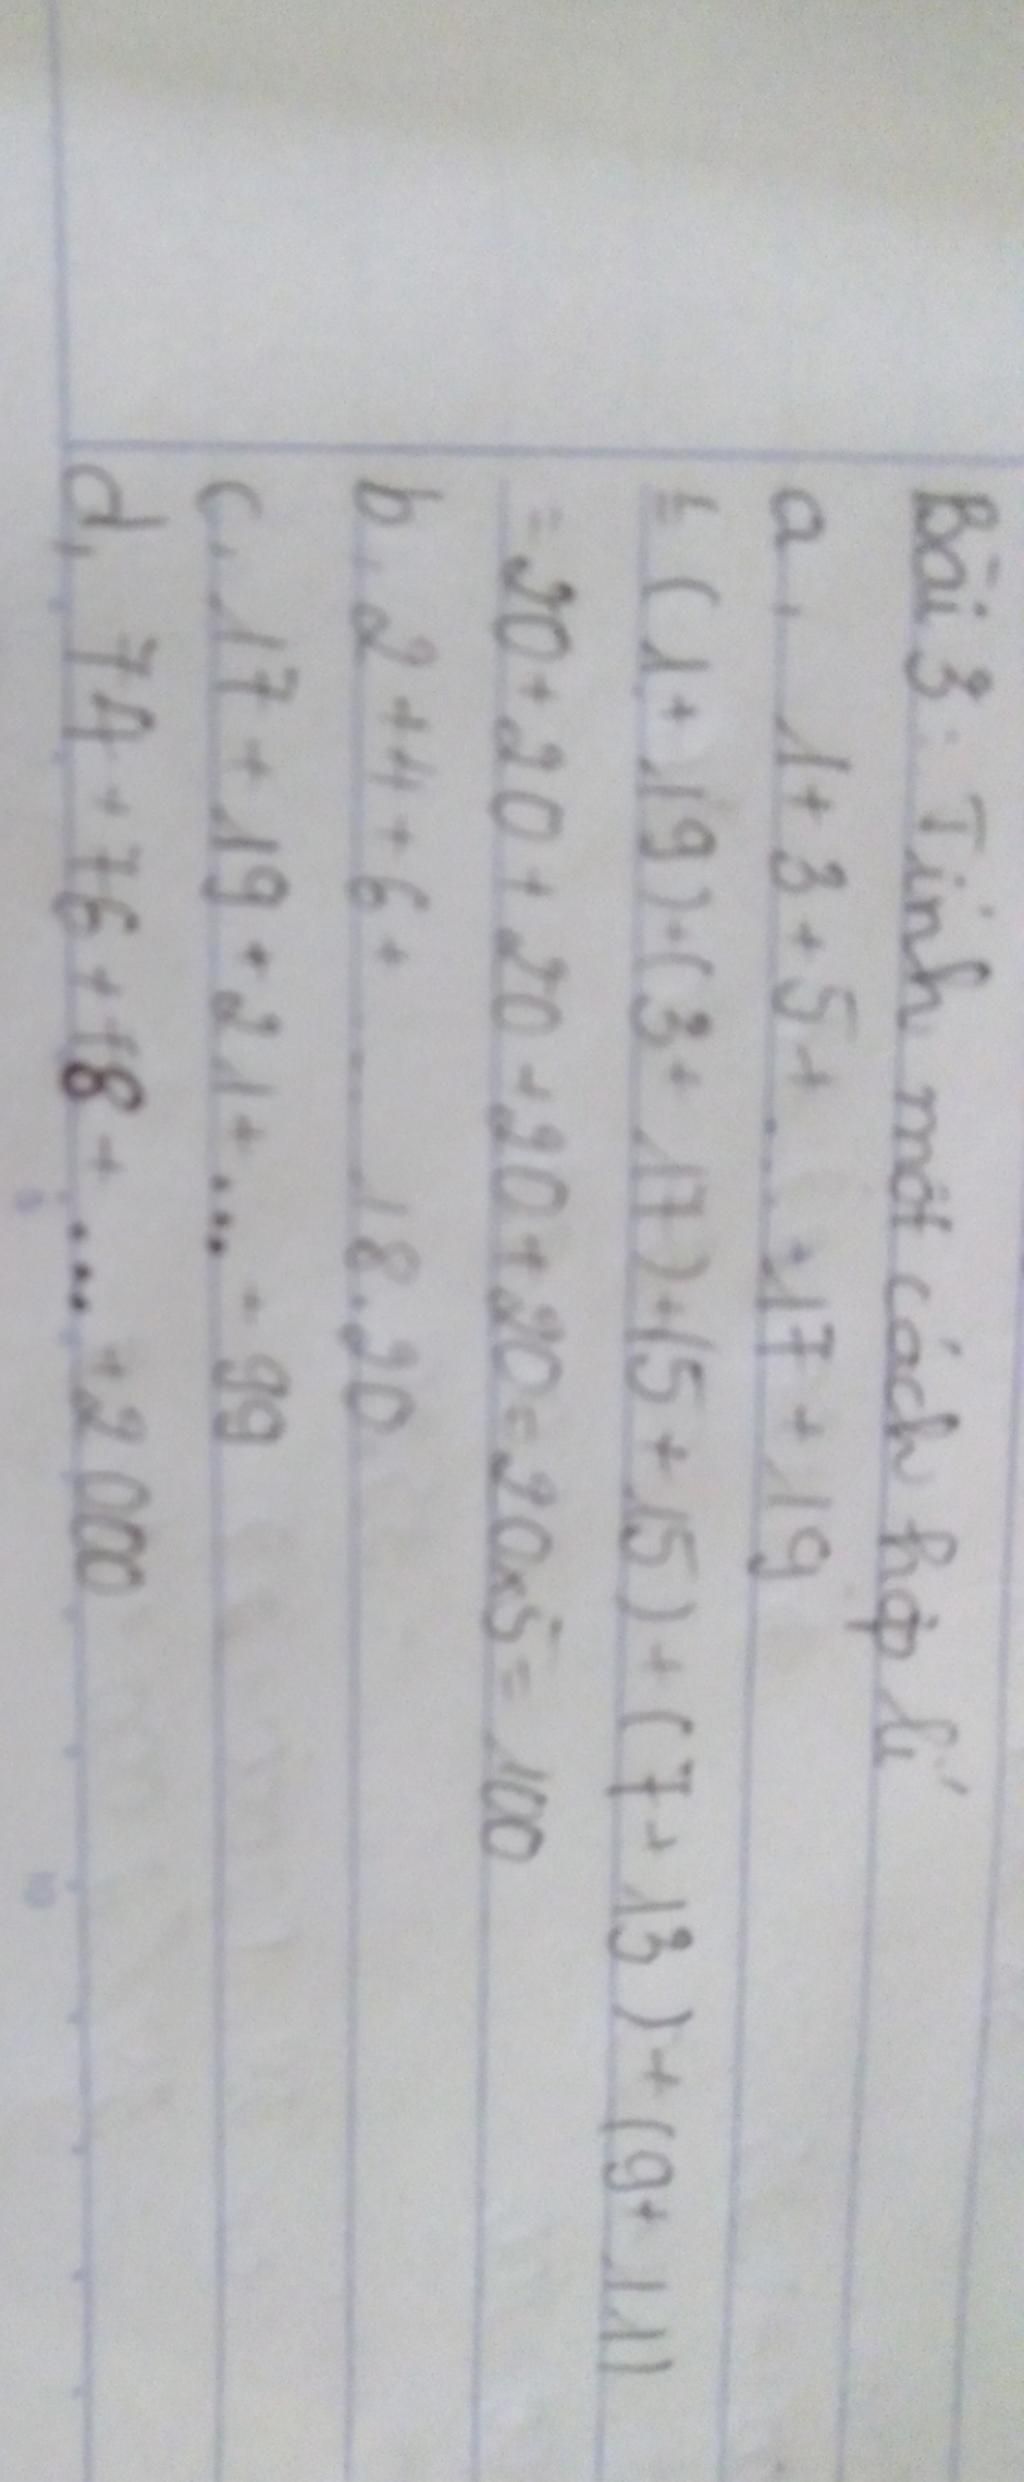 Bài 3: Tính một cách hợp lí
a, 1+3+5+ ... +17+19
= (1+19)+(3+17)+(5+15)+(7+13)+(9+11)
= 20+20+20+20+20=20x5= 100
b, 2+4+6+ ... 18.20
c, 17+19+21+... - 99
d, 74+76+78+ ... +2000